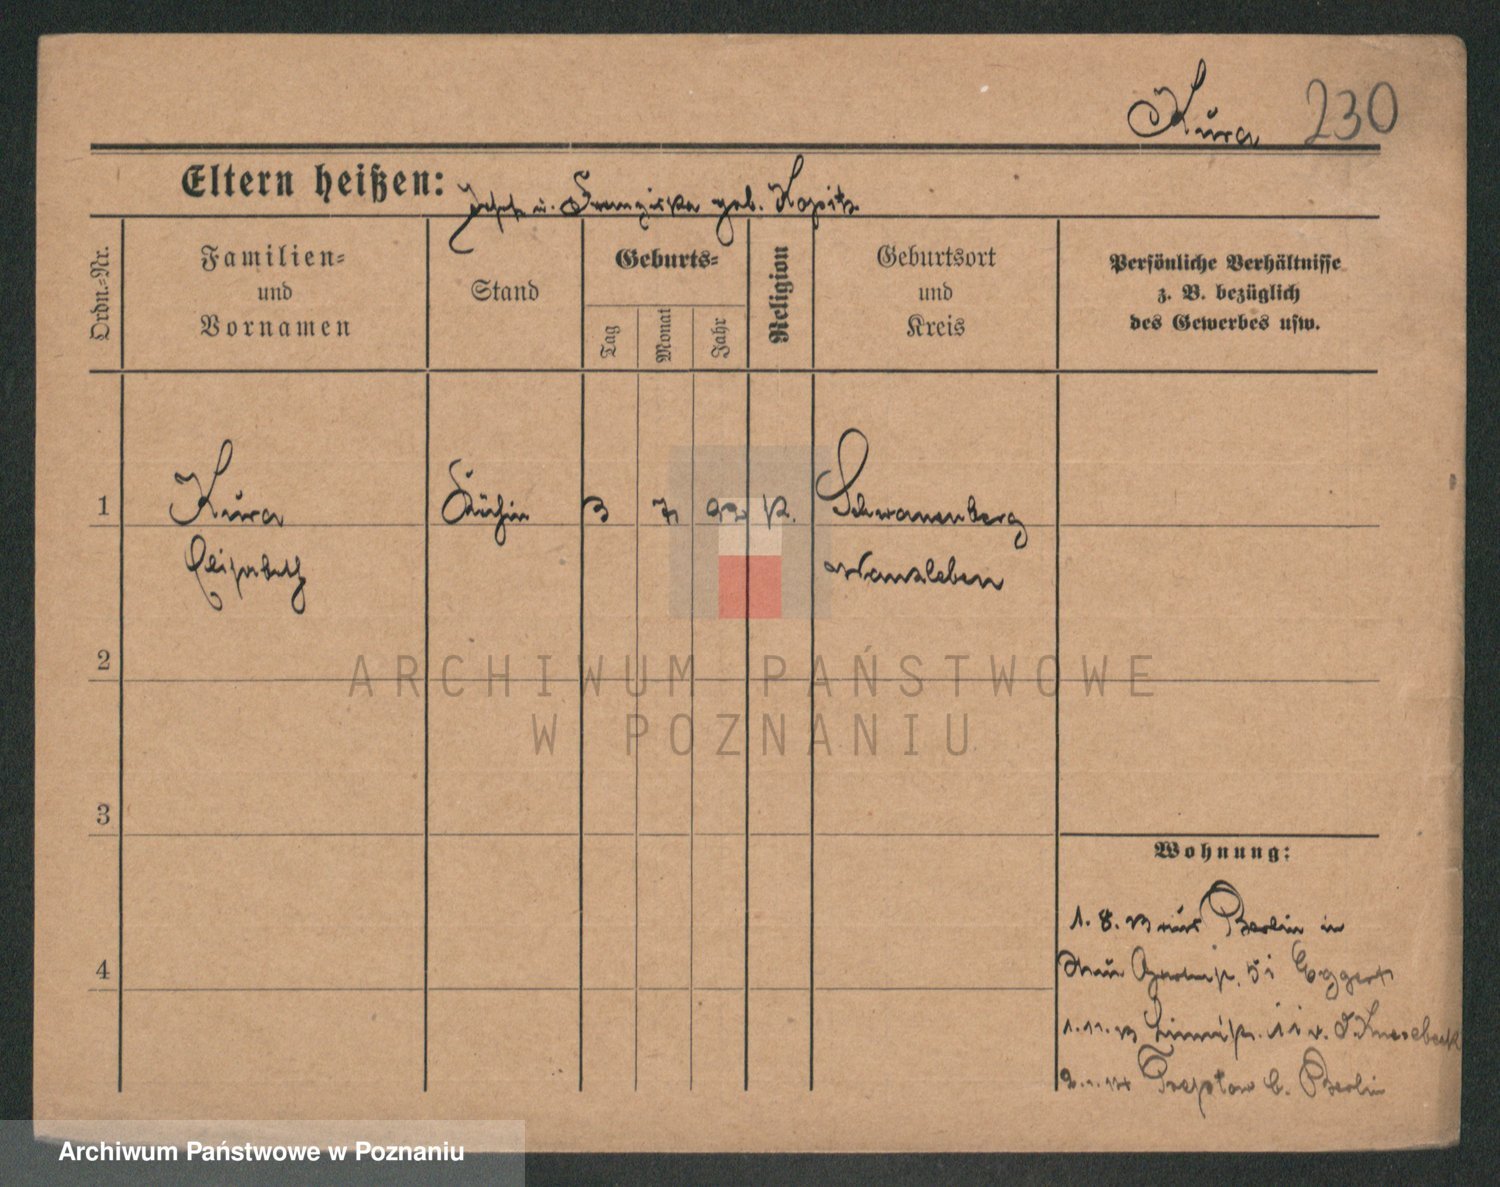 Kura 230
Eltern heißen: Josef u. Franziska geb. Kopitz
Ordn.-Nr.
Familien-
und
Vornamen
Stand
Geburts-
Tag
Monat
Jahr
Religion
Geburtsort
und
Kreis
Persönliche Verhältnisse
z. B. bezüglich
des Gewerbes usw.
1
Kura
Elisabeth
Köchin
3 7 93 k.
Schwanenberg
Wansleben
2
3
4
Wohnung:
1. 8. 13 aus Berlin in
5 i Eggert
1. 11. 13 11 v. d. Knesebeck
Treptow b. Berlin
ARCHIWUM PAŃSTWOWE
W POZNANIU
Archiwum Państwowe w Poznaniu